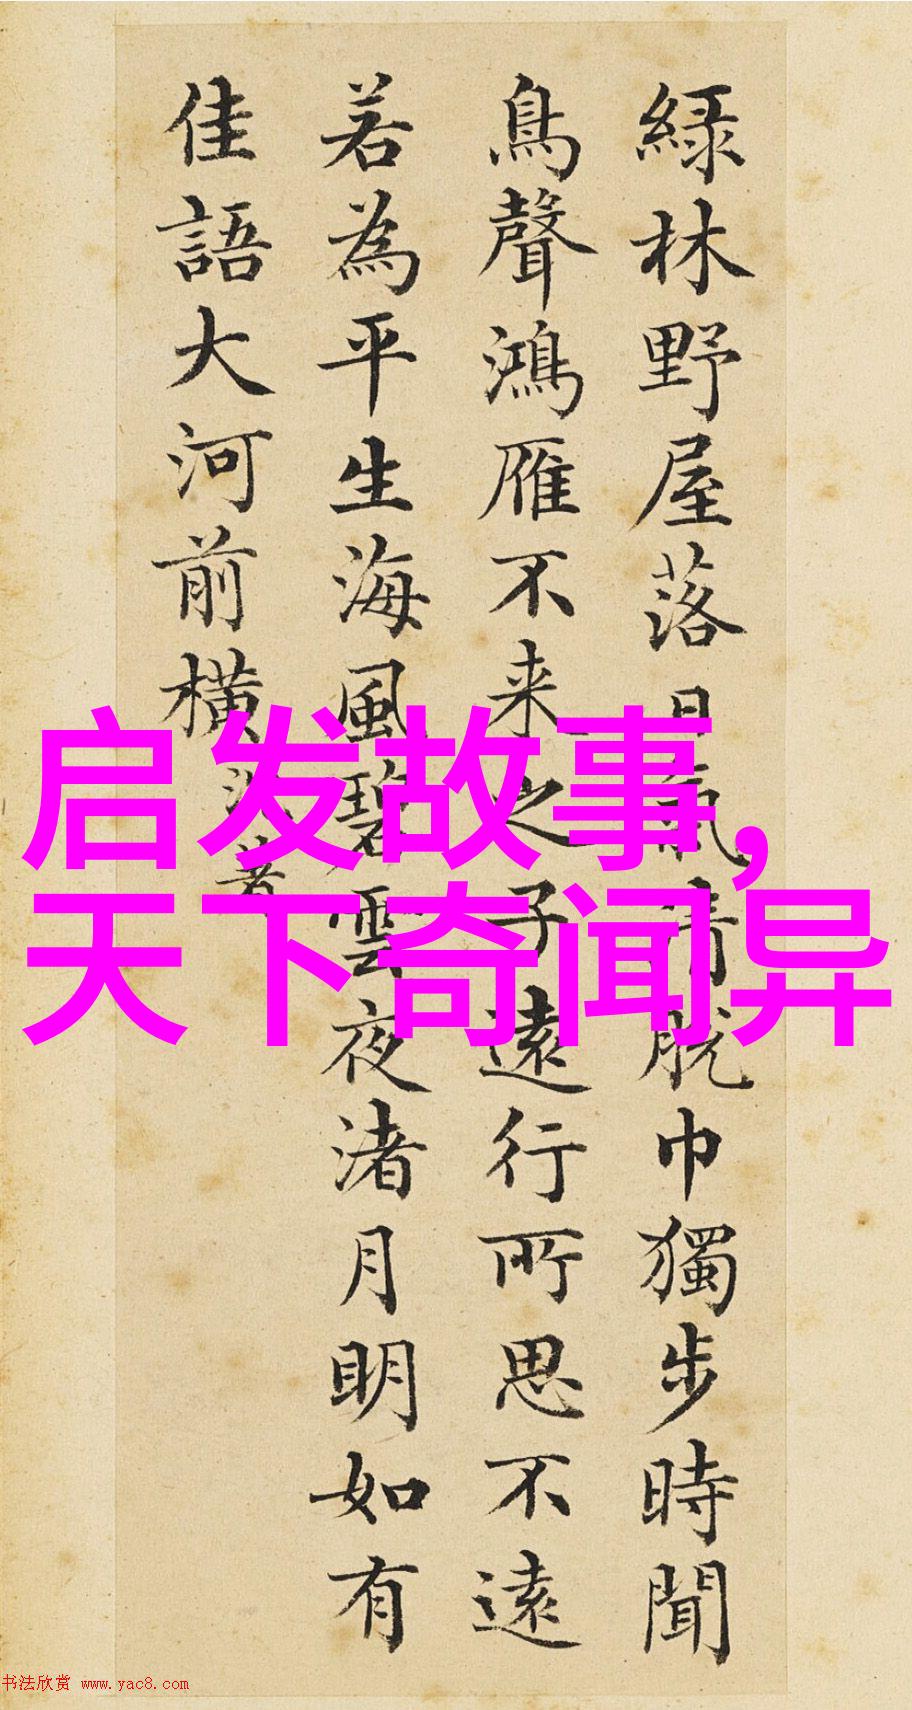 綠林野屋落日氣清脫巾獨步時聞
鳥聲鴻雁不来之子遠行所思不遠
若為平生海風碧雲夜渚月明如有
佳語大河前橫
启发故事,
天下奇闻异
书法欣赏 www.yac8.com